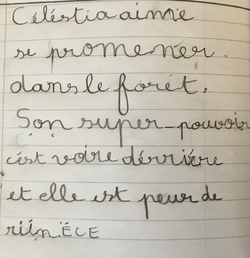 Céléstia aime
se promener
dans le forêt.
Son super-pouvoir
c'ést voire dérriére
et elle est peur de
riin. ECE